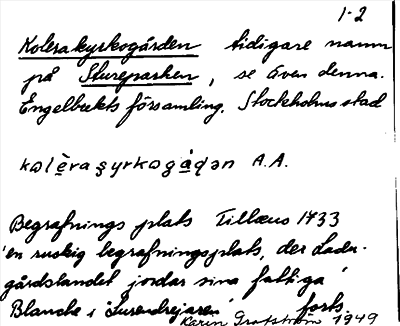 1-2
Kolerakyrkogården tidigare namn
på Stureparken, se även denna.
Engelbrekts församling. Stockholms stad
kɷlèraşyrkɷgå̀ḍən A.A.
Begrafnings plats Tillæus 1733
'en ruskig begrafningsplats, der Ladu-
gårdslandet jordar sina fattiga'
Blanche i 'Surendrejaren' forts.
Karin Grafström 1949